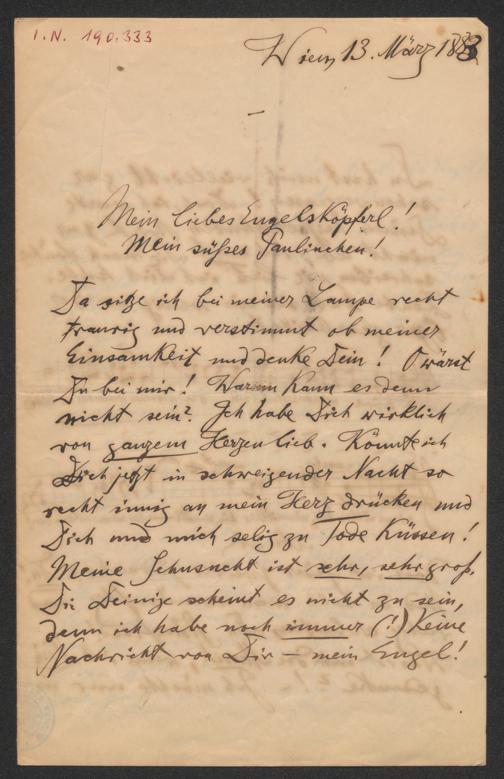 I.N. 190.333
Wien, 13. März 1883
Mein liebes Engelsköpferl!
Mein süßes Paulinchen!
Da sitze ich bei meiner Lampe recht
traurig und verstimmt ob meiner
Einsamkeit und denke Dein! O wärst
Du bei mir! Warum kann es denn
nicht sein? Ich habe Dich wirklich
von ganzem Herzen lieb. Könnte ich
Dich jetzt in schweigender Nacht so
recht innig an mein Herz drücken und
Dich und mich selig zu Tode küssen!
Meine Sehnsucht ist sehr, sehr groß.
Die Deinige scheint es nicht zu sein,
denn ich habe noch immer (!) keine
Nachricht von Dir – mein Engel!